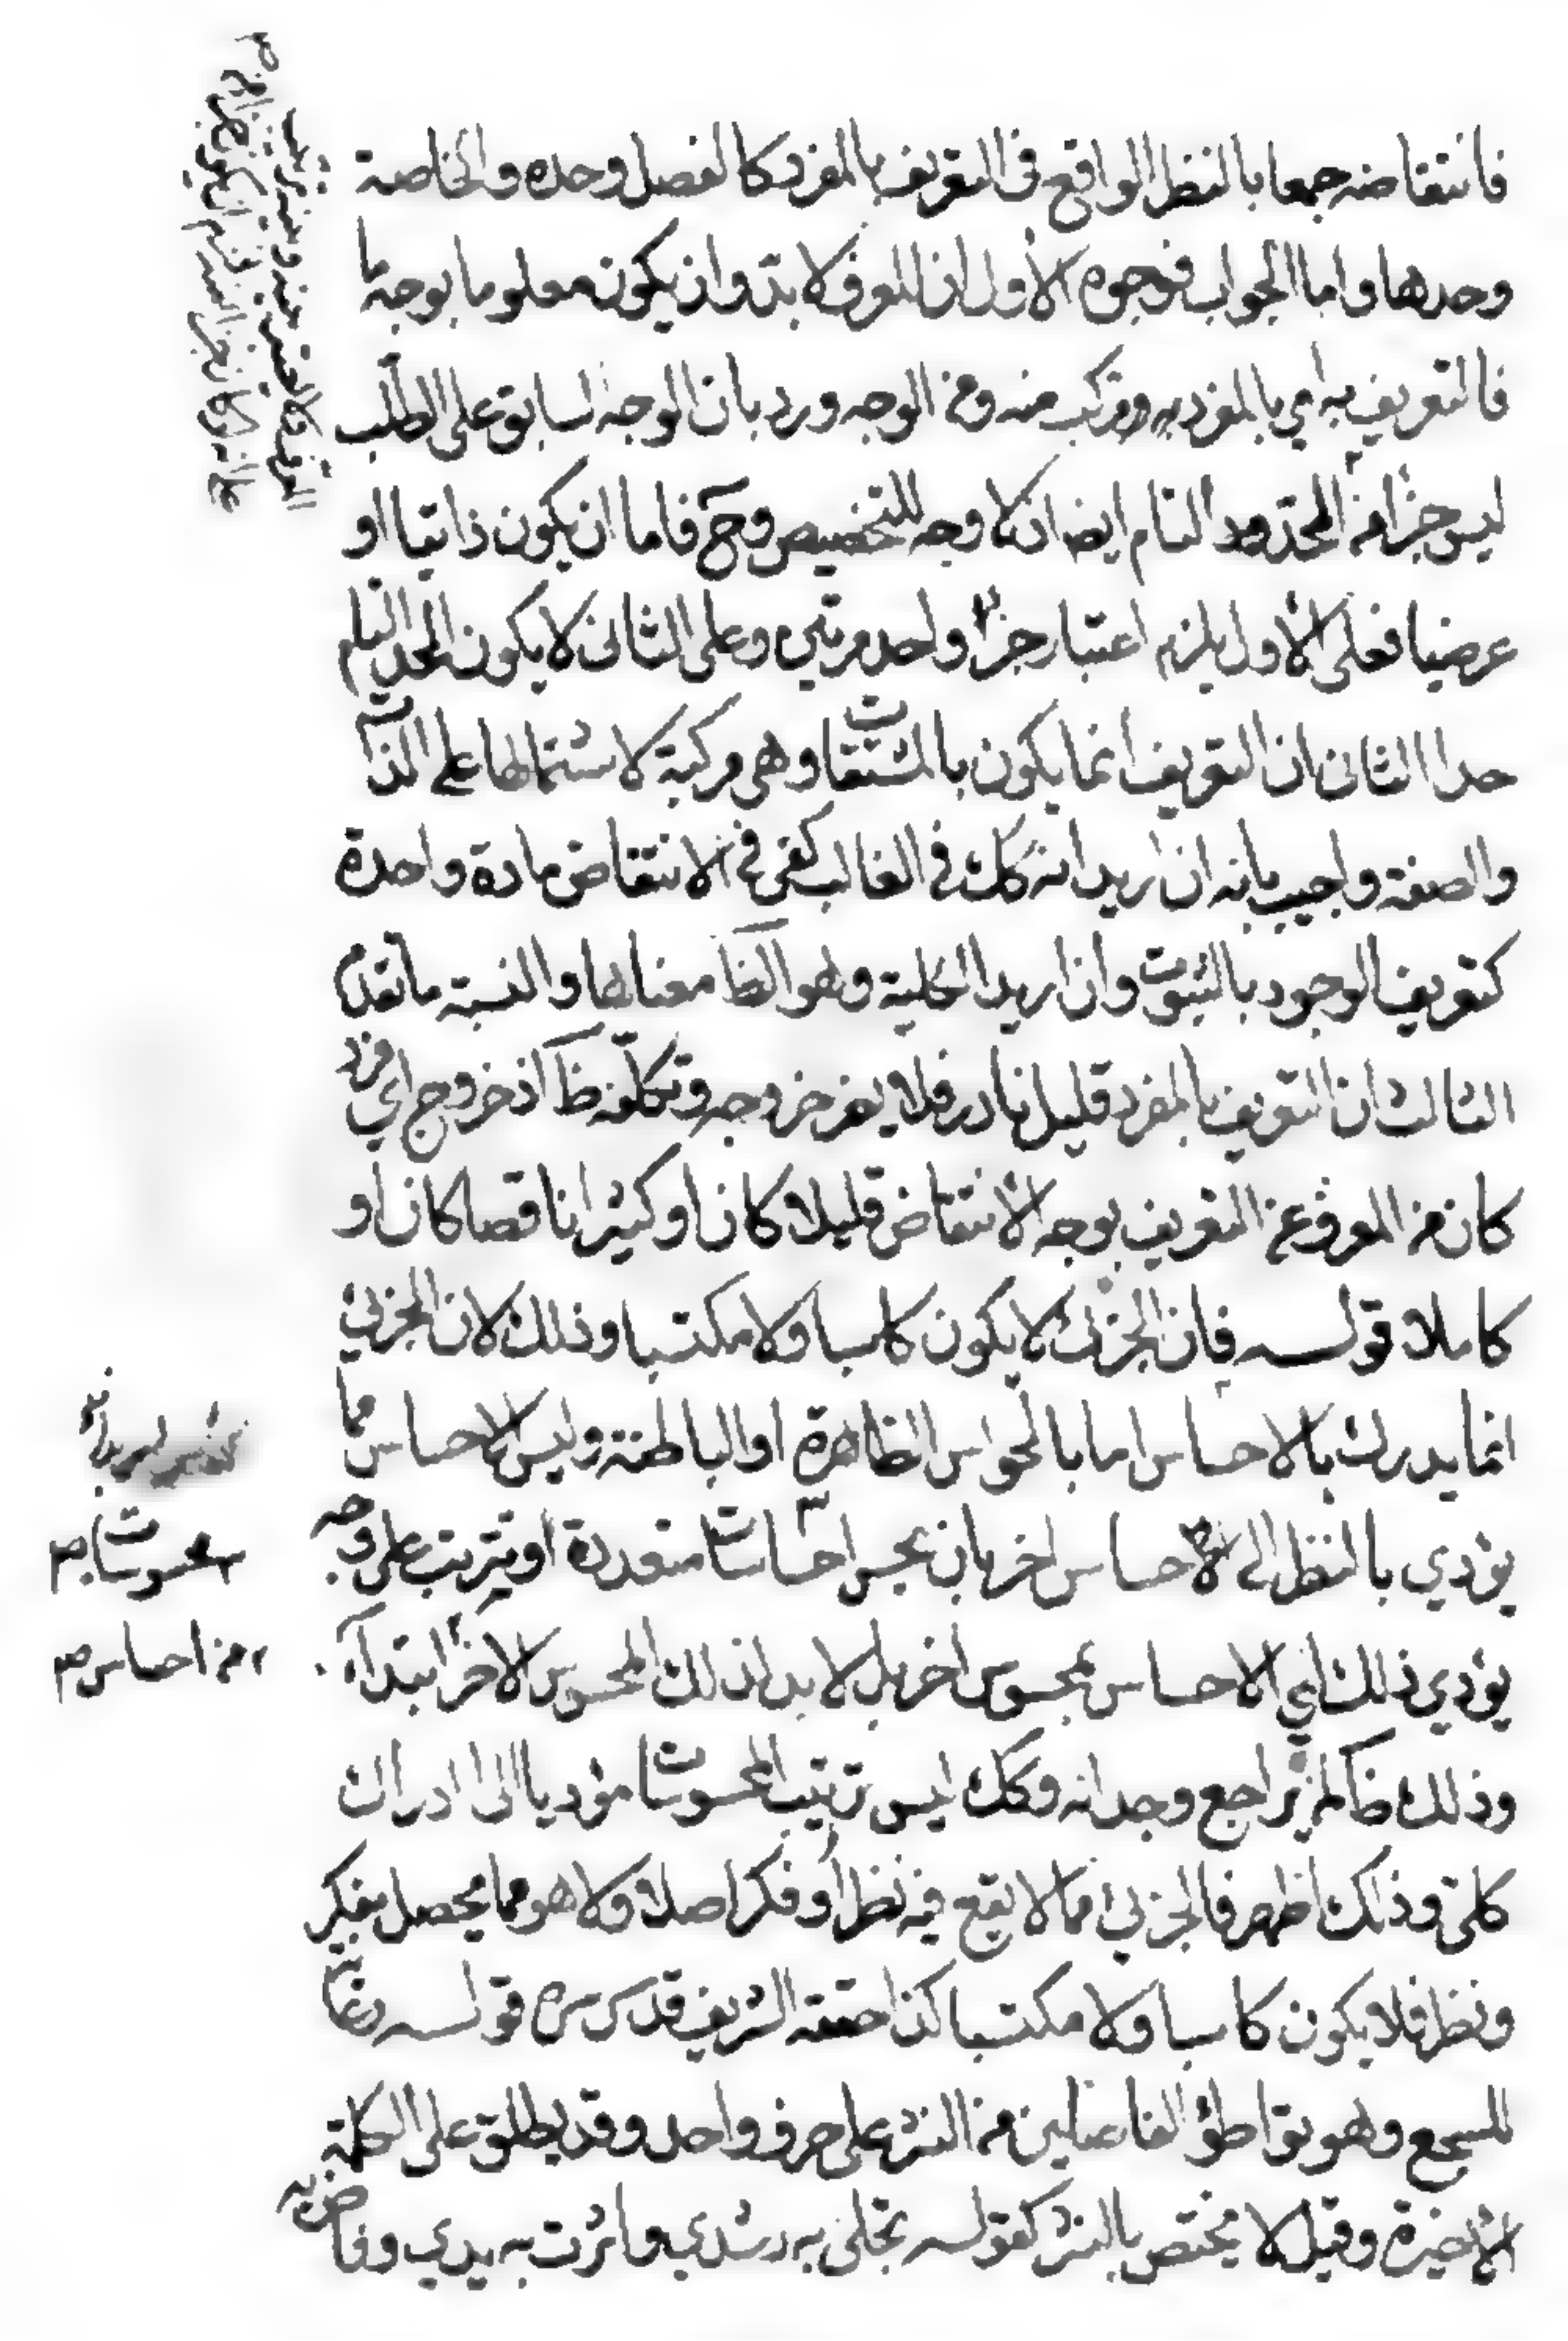 فانتقاضه جمعا بالنظر الواقع في التعريف بالمفرد كالفصل وحده والخاصة
وحدها واما الجواب فوجوه الأول ان المعرف لا بد وان يكون معلوما بوجه ما
فالتعريف به اي بالمفرد مركب منه ومن الوجه ورد بان الوجه السابق على الطلب
ليس جزأ من الحد التام ايضا اذ لا وجه للتخصيص وح فاما ان يكون ذاتيا او
عرضيا فعلى الأول يلزم اعتبار جزء واحد مرتين وعلى الثاني لا يكون الحد التام
حدا الثاني ان التعريف انما يكون بالمشتقات وهي مركبة لاشتمالها على الذات
والصفة واجيب بانه ان اريد انه كك في الغالب كفى في الانتقاض مادة واحدة
كتعريف الوجود بالثبوت وان اريد الكلية وهو الظا معناها والنسبة ما تقدم
الثالث ان التعريف بالمفرد قليل نادر فلا يضر خروجه وتكلفه ظا اذ خروج اي فرد
كان من المعرف عن التعريف يوجه الانتقاض قليلا كان او كثيرا ناقصا كان او
كاملا قوله فان الجزئي لا يكون كاسبا ولا مكتسبا وذلك لان الجزئي
انما يدرك بالاحساس اما بالحواس الظاهرة او الباطنة وليس الاحساس مما
يؤدي بالنظر الى الاحساس اخر بان يحس احساسات متعددة او يترتب على وجه
يؤدي ذلك الى الاحساس بمحسوس اخر بل لا بد لذلك المحسوس الاخر ابتداء
وذلك ظا لمن يراجع وجدانه وكك ليس ترتيب المحسوسات مؤديا الى ادراك
كلي وذلك اظهر فالجزئي مما لا يقع فيه نظر او فكر اصلا ولا هو مما يحصل بفكر
ونظر فلا يكون كاسبا ولا مكتسبا كذا حققه الشريف قدس سره قوله رعاية
للسجع وهو تواطؤ الفاصلين من النثر على حرف واحد وقد يطلق على الكلمة
الاخيرة وقيل لا يختص بالنثر كقوله تجلى به رشدي واثرت به يدي وفاض به
بمحسوسات صح
من احساس صح